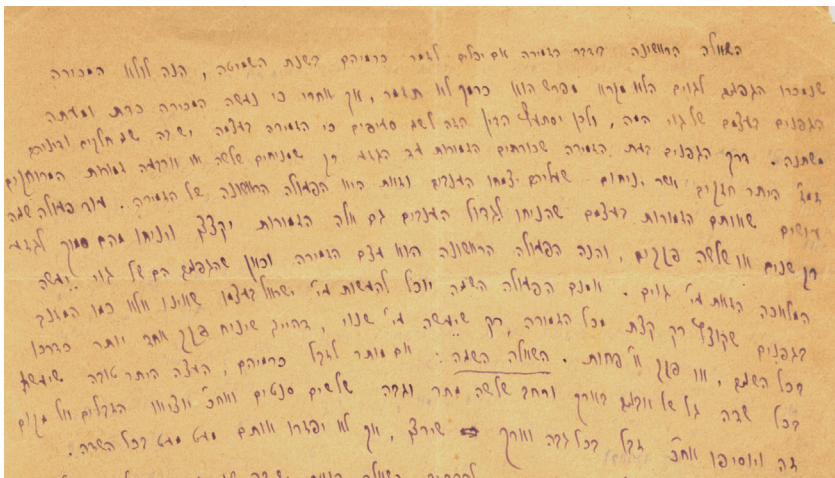 השאלה הראשונה בדבר הזמירה אם יכלים לזמר כרמיהם בשנת השמיטה, הנה לולא המכירה
שנמכרו הגפנים לגוים הלא מקרא מפרש הוא כרמך לא תזמר, אך אחרי כי נעשה המכירה כדת ומעתה
הגפנים בעצמם של גוי המה, ולכן יסתעף הדין הזה לשני סעיפים כי הזמירה בעצמה יש בה שני חלקים ודיניהם
משתנה. דרך הגפנים בעת הזמירה שכורתים הזמורות עד הגזע רק שמניחים שלשה או ארבעה זמורות המרוחקים
זמ"ז היותר חזקים אשר יניחום שעליהם יצמחו הענבים וזאת היא הפעולה הראשונה של הזמירה. עוד פעולה שניה
עושים שאותם הזמורות בעצמם שהניחו לגדול הענבים גם אלה הזמורות יקצצו ויניחו מהם סמוך לגזע
רק שנים או שלשה פקקים, והנה הפעולה הראשונה הוא עצם הזמירה וכיון שהגפנים הם של גוי יעשה
המלאכה הזאת ע"י גוים. אמנם הפעולה השניה יוכל להעשות ע"י ישראל בעצמו שאינו אלא כמו המזנב
בגפנים שקוצץ רק קצת מכל הזמורה, רק שיעשה ע"י שנוי, דהיינו שיניח פקק אחד יותר כדרכו
בכל השנים, או פקק א' פחות. השאלה השניה: אם מותר לזבל כרמיהם, העצה היותר טובה שיעשה
בכל שדה גל של אבנים בארך ורחב שלשה מתר וגבה שלשים סנטים ואח"כ יוציאו הזבלים אל מקום
זה ויוסיפו אח"כ זבל בכל גבה וארך שירצו, אך לא יפזרו אותם מעט מעט בכל השדה.